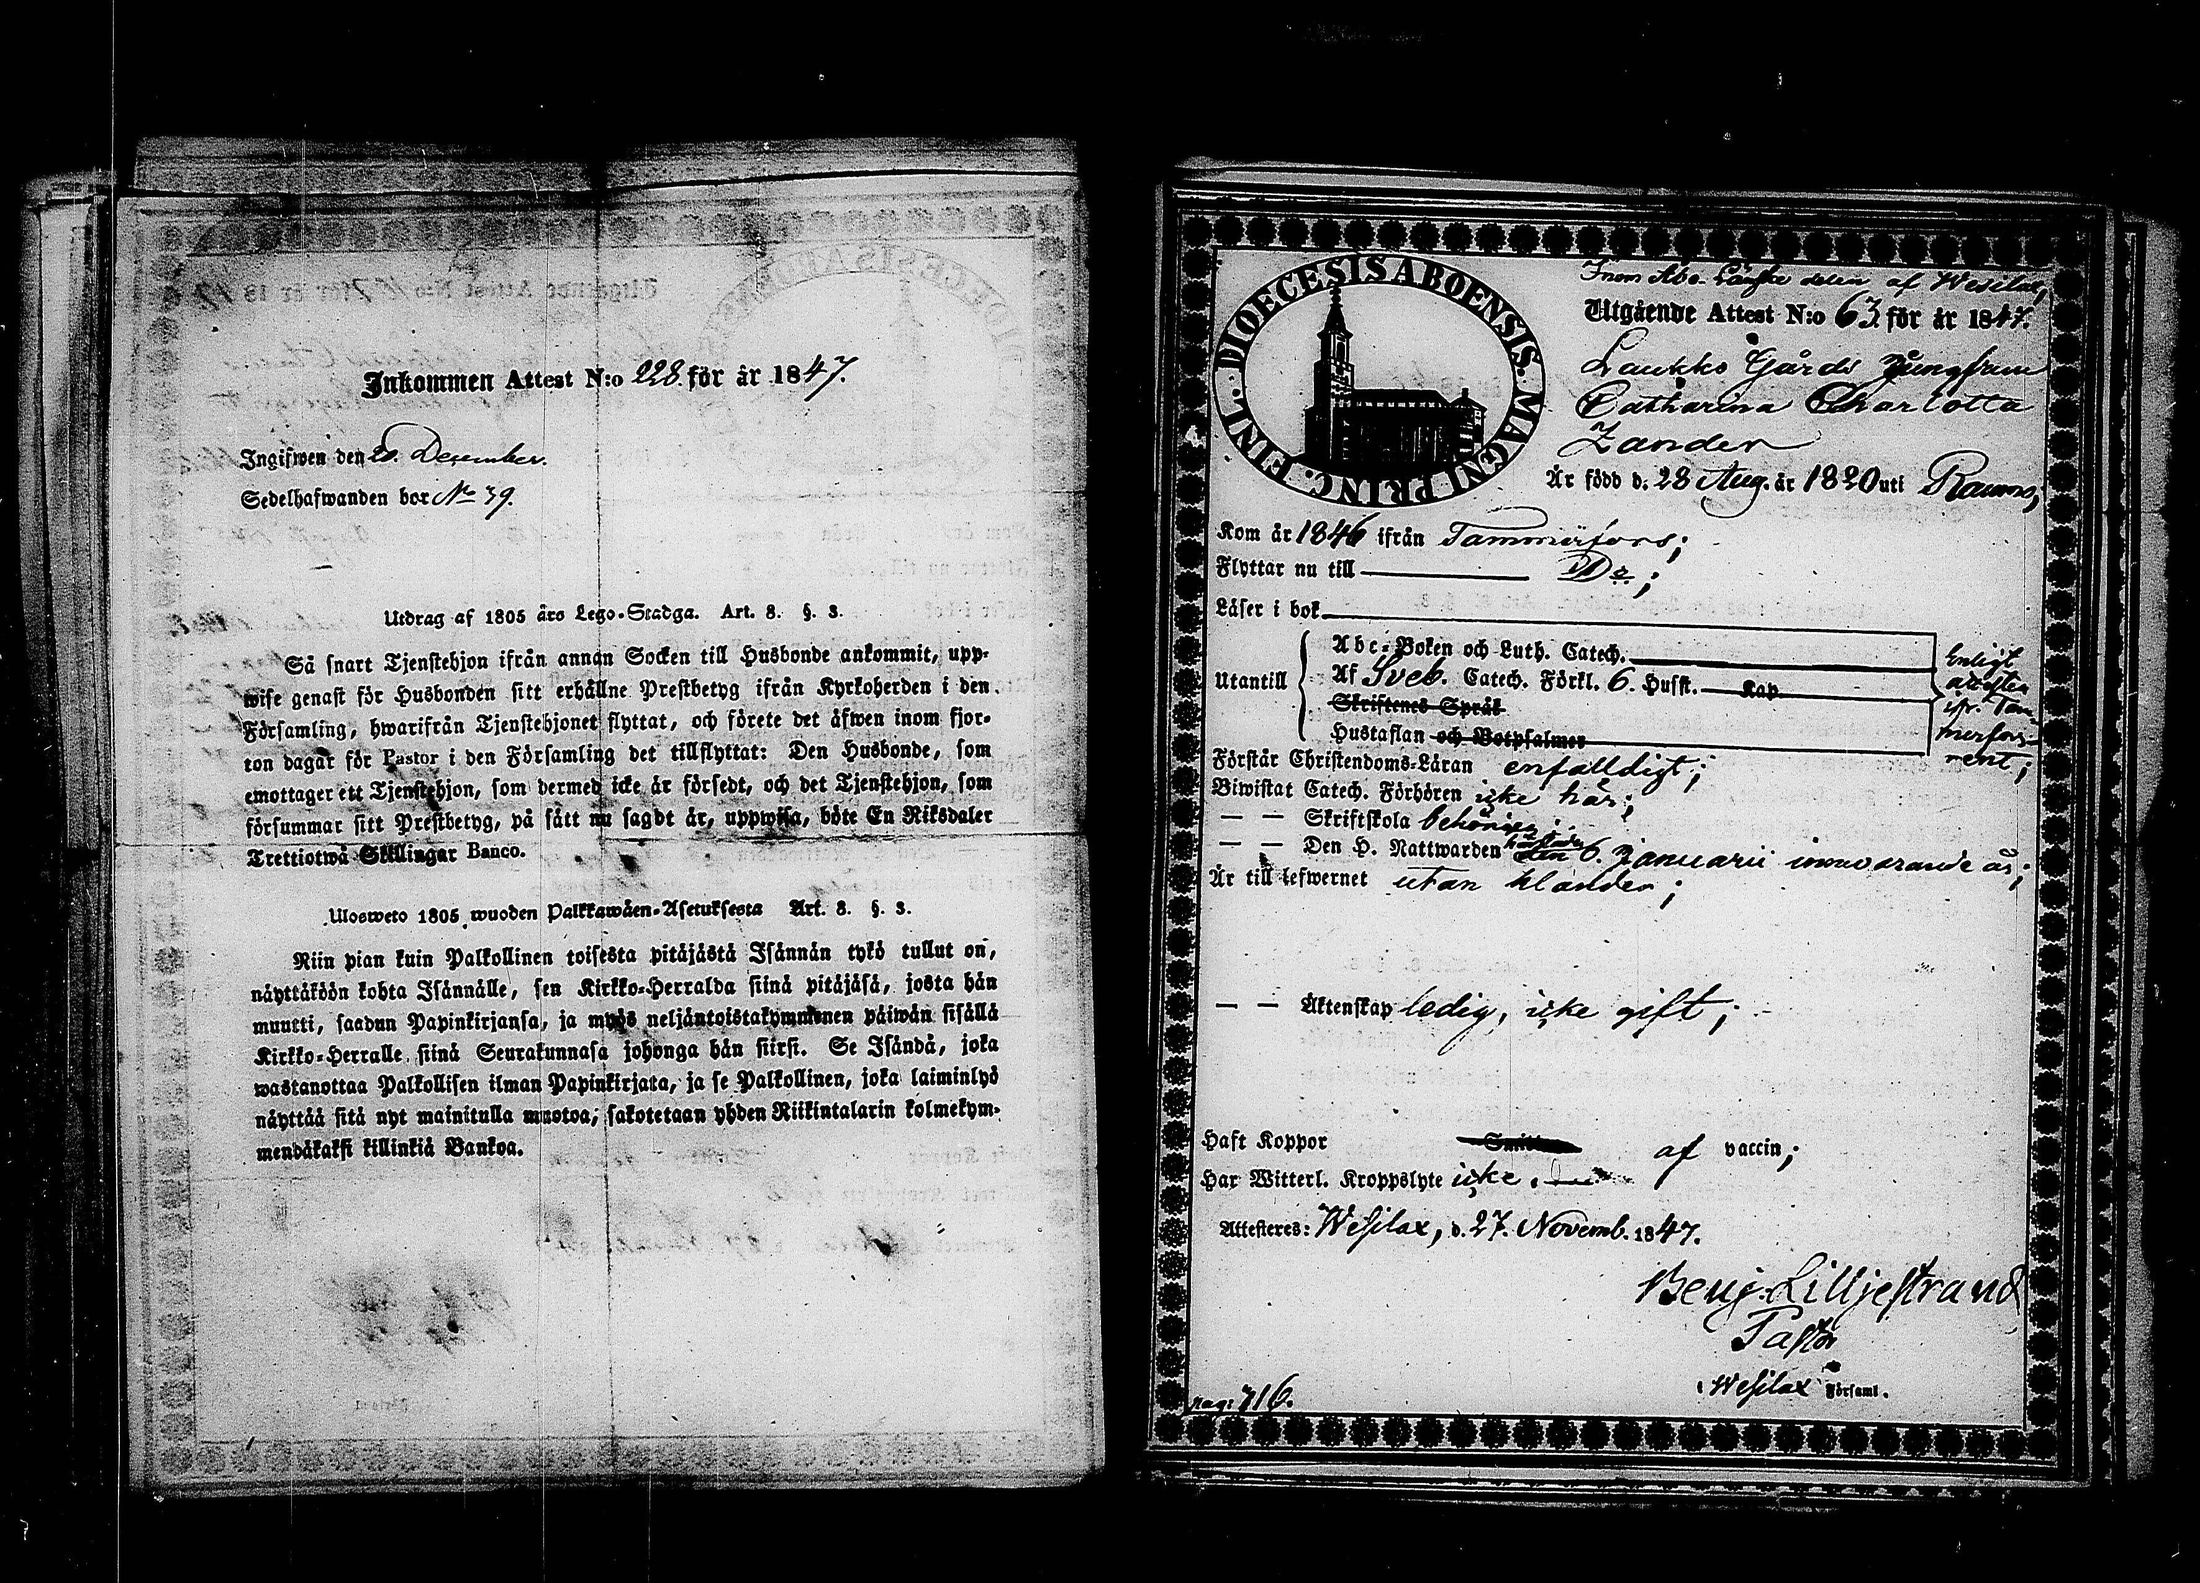 Inkommen Attest N:o 228. för år 1847.
Ingifwen den 20. December.
Sedelhafwanden bor No 39.
Utdrag af 1805 års Lego-Stadga. Art. 8. §. 3.
Så snart Tjenstehjon ifrån annan Socken till Husbonde ankommit, upp-
wise genast för Husbonden sitt erhållne Prestbetyg ifrån Kyrkoherden i den
Församling, hwarifrån Tjenstehjonet flyttat, och förete det äfwen inom fjor-
ton dagar för Pastor i den Församling det tillflyttat: Den Husbonde, som
emottager ett Tjenstehjon, som dermed icke är försedt, och det Tjenstehjon, som
försummar sitt Prestbetyg, på sätt nu sagdt är, uppwisa, böte En Riksdaler
Trettiotwå Skillingar Banco.
Ulosweto 1805 wuoden Palkkawäen-Asetuksesta Art. 8. §. 3.
Niin pian kuin Palkollinen toisesta pitäjästä Isännän tykö tullut on,
näyttäköön kohta Isännälle, sen Kirkko-Herralda siinä pitäjäsä, josta hän
muutti, saadun Papinkirjansa, ja myös neljäntoistakymmenen päiwän sisällä
Kirkko-Herralle siinä Seurakunnasa johonga hän siirsi. Se Isändä, joka
wastanottaa Palkollisen ilman Papinkirjata, ja se Palkollinen, joka laiminlyö
näyttää sitä nyt mainitulla muotoa, sakotetaan yhden Riikintalarin kolmekym-
mendäkaksi killinkiä Bankoa.
DIOECESIS ABOENSIS. MAGNI PRINC. FINL.
Inom Åbo-Länske delen af Wesilax,
Utgående Attest N:o 63. för år 1847.
Laukko Gårds Jungfrun
Catharina Charlotta
Zander
Är född d. 28 Aug. år 1820 uti Raumo,
Kom år 1846 ifrån Tammerfors;
Flyttar nu till Do.;
Läser i bok
Utantill
Abc-Boken och Luth. Catech.
Af Sveb. Catech. Förkl. 6. Hufst. Kap
Skriftenes Språk
Hustaflan och Botpsalmer
Enligt
attesten
ifr. Tam-
merfors
rent;
Förstår Christendoms-Läran enfalldigt;
Biwistat Catech. Förhören icke här;
— — Skriftskola behörigen;
— — Den H. Nattwarden den 6. Januarii innevarande år;
Är till lefwernet utan klander;
— — Äktenskap ledig, icke gift;
Haft Koppor af vaccin;
Har Witterl. Kroppslyte icke.
Attesteres: Wesilax, d. 27. Novemb. 1847.
Benj. Lilljestrand
Pastor
i Wesilax Församl.
Pag: 716.